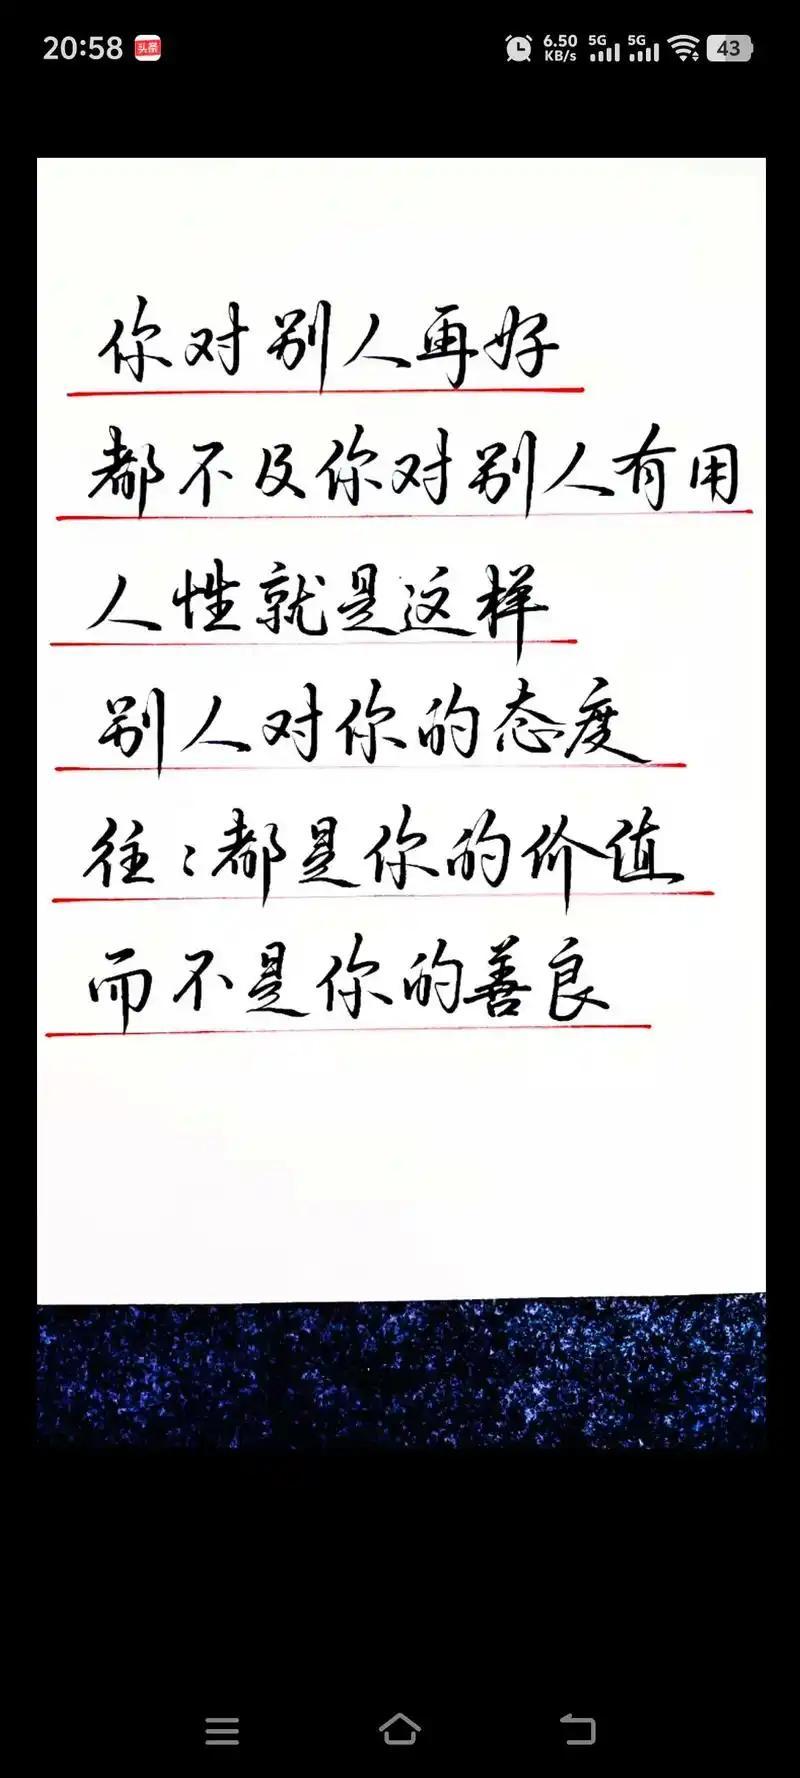 20:58 头条 6.50 KB/s 5G 5G 43
你对别人再好
都不及你对别人有用
人性就是这样
别人对你的态度
往々都是你的价值
而不是你的善良